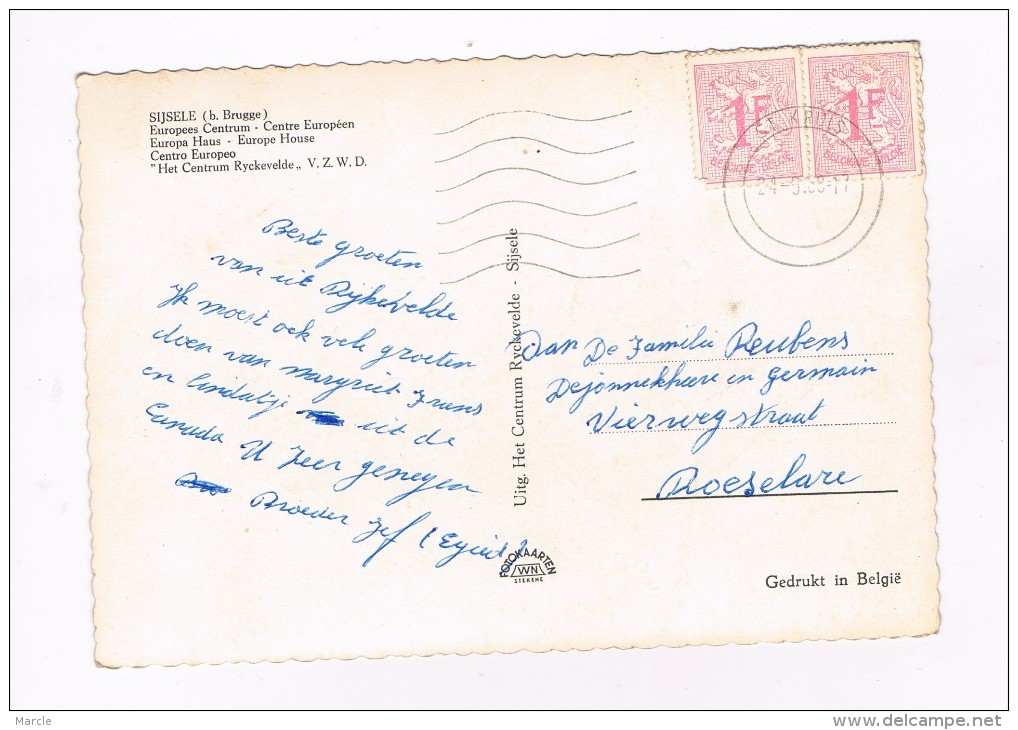 SIJSELE (b. Brugge)
Europees Centrum - Centre Européen
Europa Haus - Europe House
Centro Europeo
"Het Centrum Ryckevelde„ V. Z. W. D.
Beste groeten
van uit Rijkevelde
Ik moest ook vele groeten
doen van margriet Frans
en lindatije uit de
Canada U zeer genegen
Broeder Jef
Uitg. Het Centrum Ryckevelde - Sijsele
FOTOKAARTEN
STEKENE
1F
BELGIQUE-BELGIE
1F
BELGIQUE-BELGIE
Aan De Familie Reubens
Dejonnekheere en Germain
Vierwegstraat
Roeselare
Gedrukt in België
Marcle
www.delcampe.net